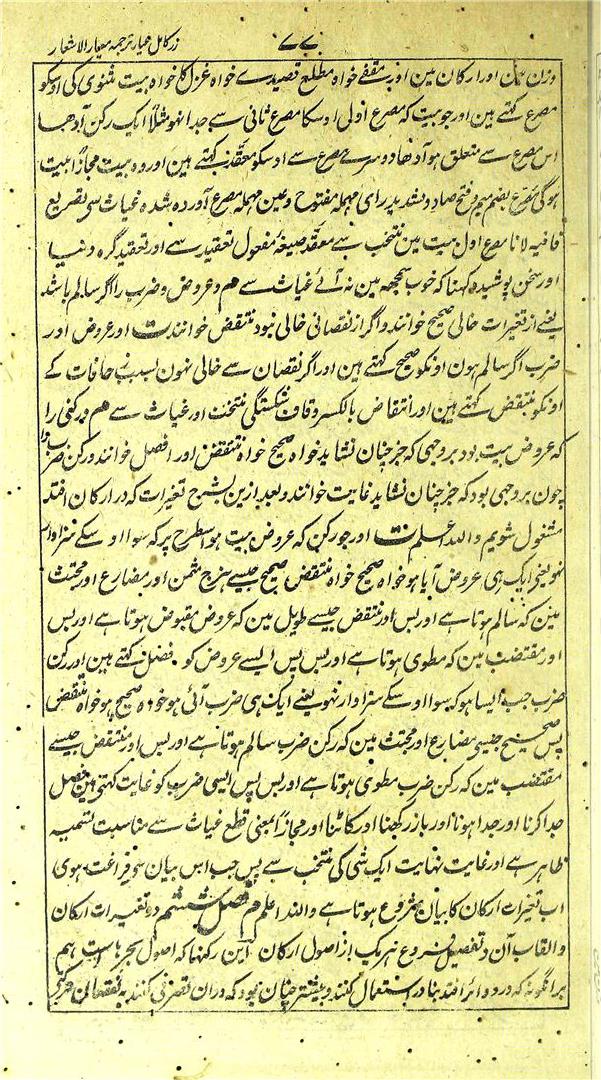 زر کامل عیار ترجمہ معیار الاشعار
۷۷
وزن مین اور ارکان مین اور مقفے خواہ مطلع قصیدے خواہ غزل کا خواہ بیت مثنوی کی اوسکو
مصرع کہتے ہین اور جو بیت کہ مصرع اولی اوسکا مصرع ثانی سے جدا نہو مثلاً ایک رکن آدھا
اس مصرع سے متعلق ہو آدھا دوسرے مصرع سے اوسکو معقد کہتے ہین اور وہ بیت مجازاً بیت
ہوگی مصرع بضم میم و فتح صاد و تشدید رای مہملہ مفتوح و عین مہملہ مصرع آوردہ شدہ غیاث سی تصریع
قافیہ لانا مصرع اول بیت مین منتخب سے معقد صیغۂ مفعول تعقید سے اور تعقید گرہ دینا
اور سخن پوشیدہ کہنا کہ خوب سمجھ مین نہ آئے غیاث سے هم و عروض و ضرب را اگر سالم باشد
یعنے از تغیرات خالی صحیح خوانند و اگر از نقصانی خالی نبود منتقض خوانند ت اور عروض اور
ضرب اگر سالم ہون اونکو صحیح کہتے ہین اور اگر نقصان سے خالی نہون بسبب زحافات کے
اونکو منتقض کہتے ہین اور انتقاض بالکسر و قاف شکستگی منتخب اور غیاث سے هم و رکنی را
کہ عروض بیت بود بر وجهی کہ جز چنان نشاید خواہ صحیح خواہ منتقض اور افصل خوانند و رکن ضرب را
چون بر وجهی بود کہ جز چنان نشاید غایت خوانند و بعد ازین بشرح تغیرات کہ در ارکان افتد
مشغول شویم واللہ اعلم ت اور جو رکن کہ عروض بیت ہو اسطرح پر کہ سوا او سکے سزاوار
نہو یعنی ایک ہی عروض آیا ہو خواہ صحیح خواہ منتقض صحیح جیسے ہزج مثمن اور مضارع اور مجتث
مین کہ سالم ہوتا ہے اور بس اور منتقض جیسے طویل مین کہ عروض مقبوض ہوتا ہے اور بس
اور مقتضب مین کہ مطوی ہوتا ہے اور بس پس ایسے عروض کو فصل کہتے ہین اور رکن
ضرب جب ایسا ہو کہ سوا اوسکے سزاوار نہو یعنے ایک ہی ضرب آئی ہو خواہ صحیح ہو خواہ منتقض
پس صحیح جیسی مضارع اور مجتث مین کہ رکن ضرب سالم ہوتا ہے اور بس اور منتقض جیسے
مقتضب مین کہ رکن ضرب مطوی ہوتا ہے اور بس پس ایسی ضرب کو غایت کہتی ہین فصل
جدا کرنا اور جدا ہونا اور باز رکھنا اور کاٹنا اور مجازاً بمعنی قطع غیاث سے مناسبت تسمیہ
ظاہر ہے اور غایت نہایت ایک شی کی منتخب سے پس جب اس بیان سے فراغت ہوی
اب تغیرات ارکان کا بیان شروع ہوتا ہے واللہ اعلم هم فصل ششم در تغیرات ارکان
و القاب آن و تفصیل فروع ہر یک از اصول ارکان این رکنہا کہ اصول بحرہاست ہم
بر انگونہ کہ در دوائر افتد بنا در استعمال کنند و بیشتر چنان بود کہ در ان تصرفی کنند بہ نقصان حرکتی